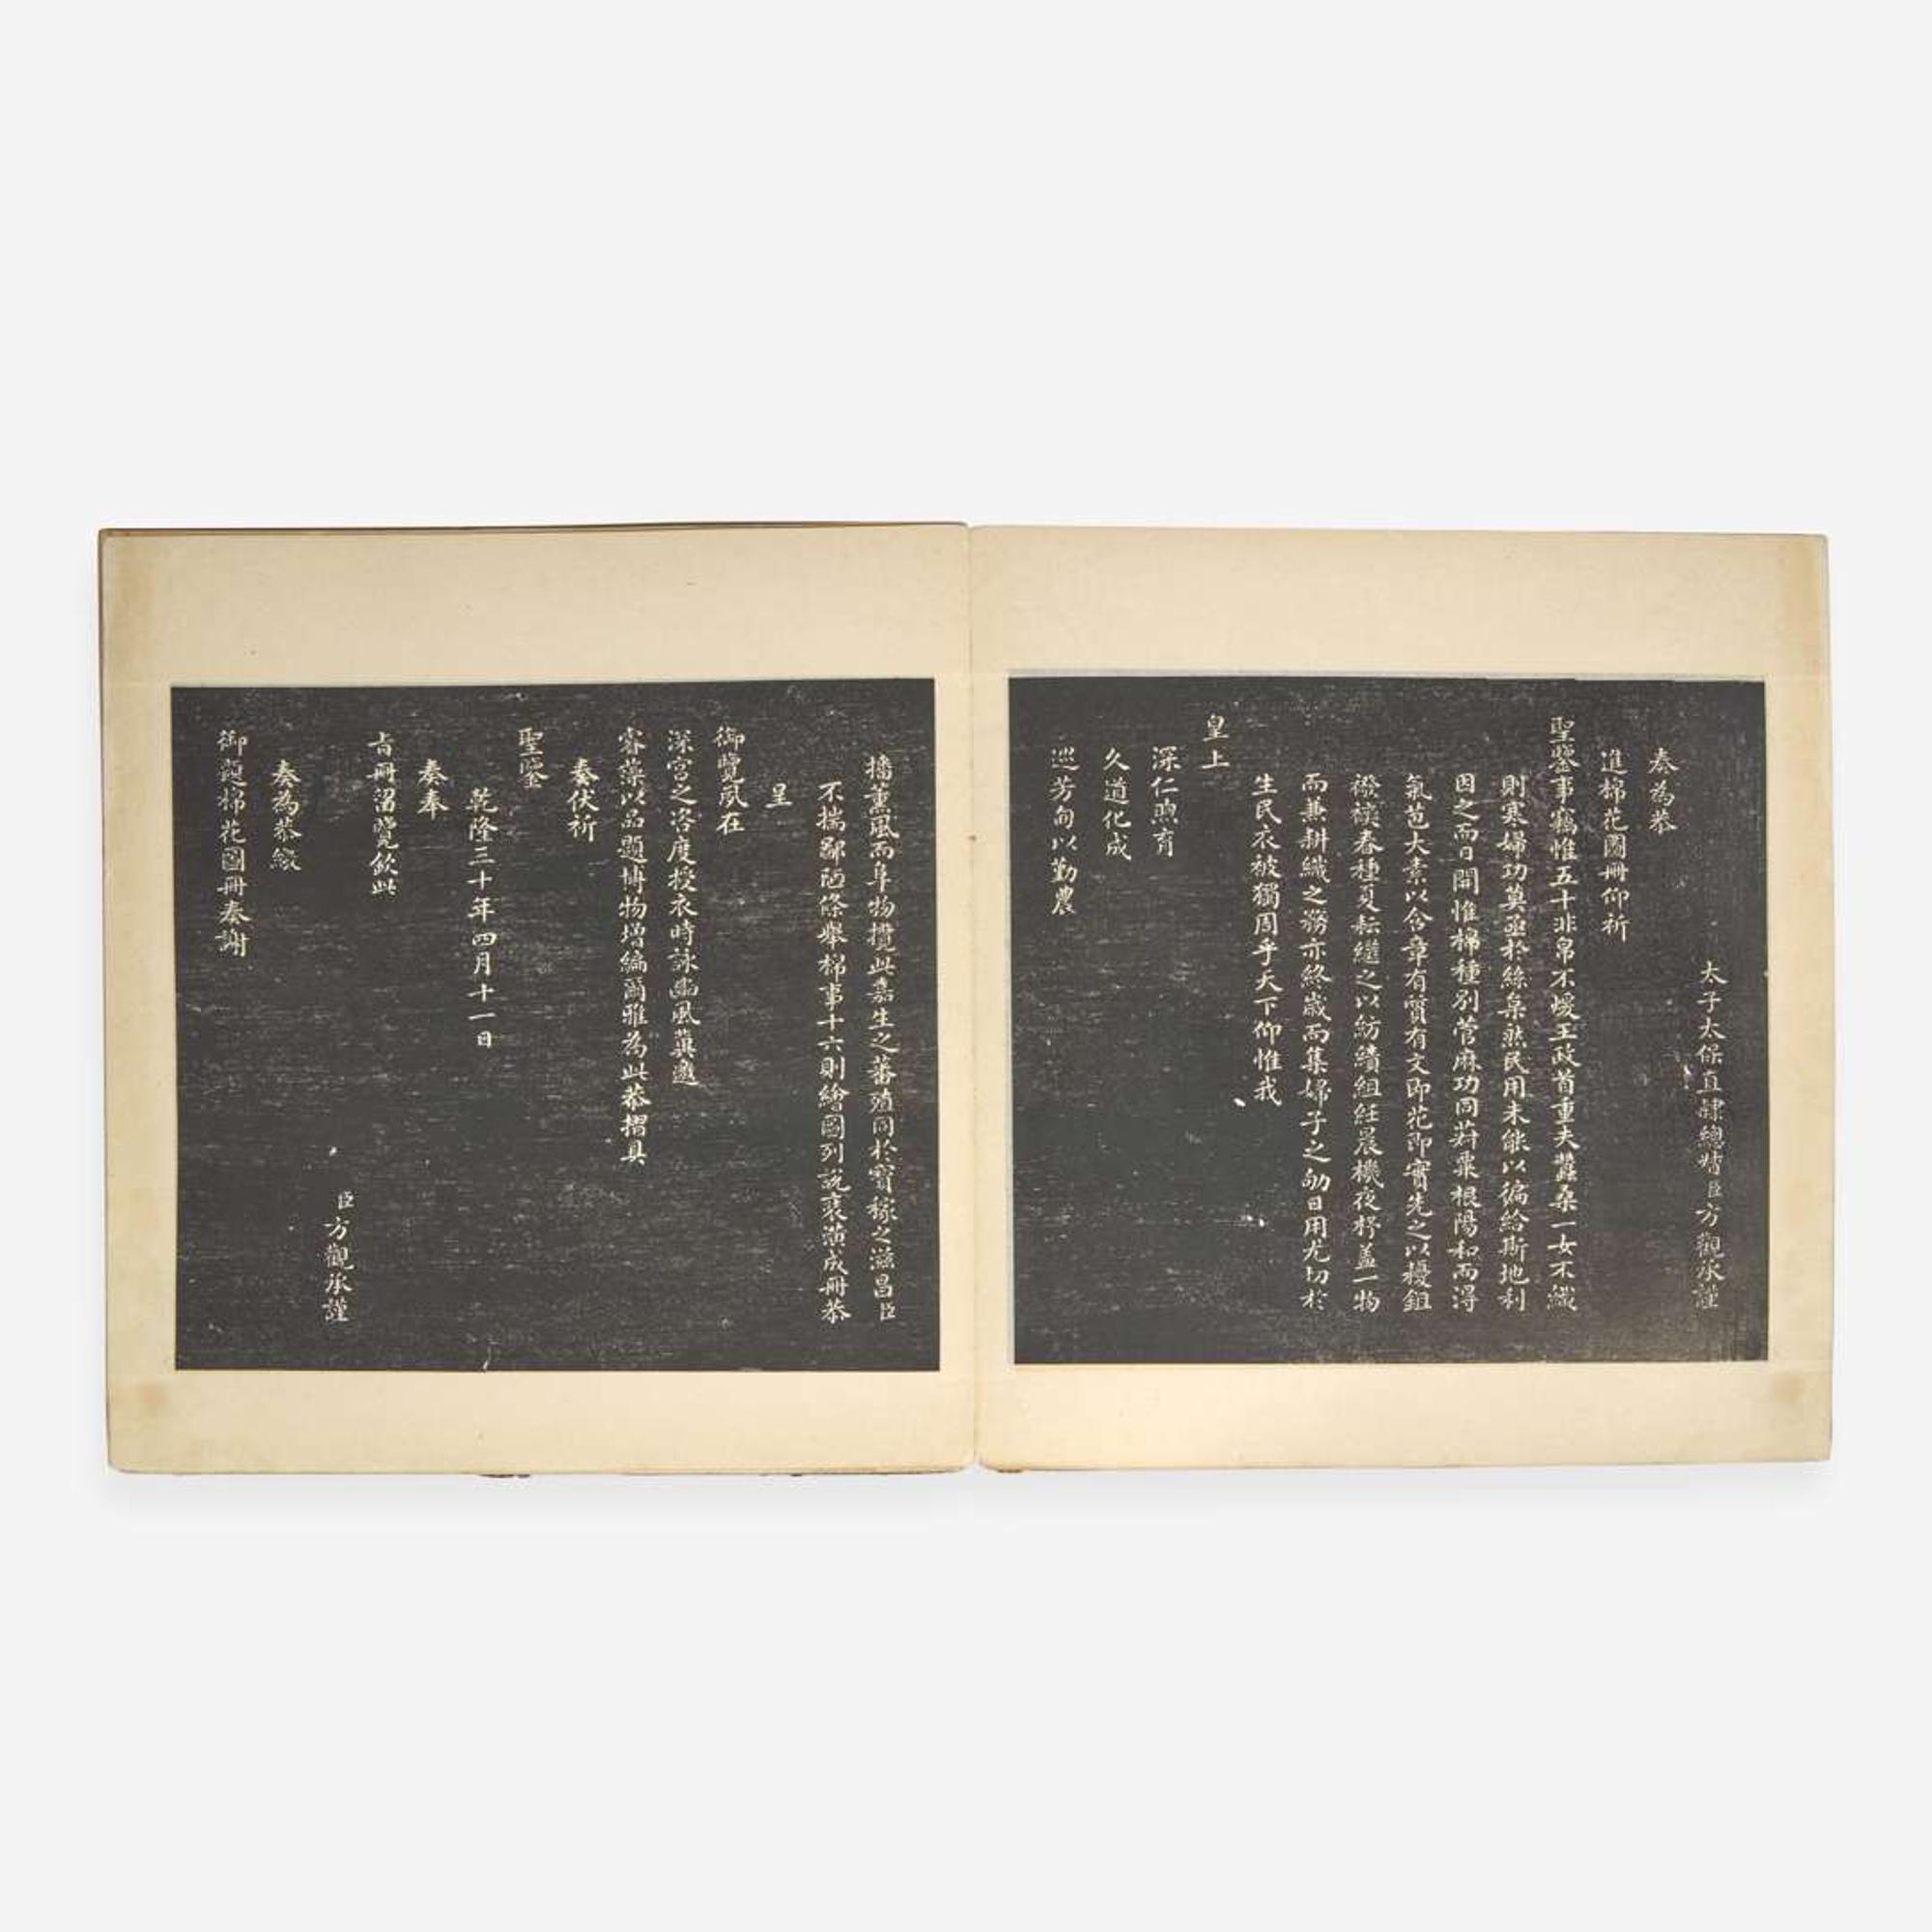 太子太保直隸總督臣方觀承謹
奏為恭
進棉花圖冊仰祈
聖鑒事竊惟五十非帛不煖王政首重夫蠶桑一女不織
則寒婦功莫亟於絲枲然民用未能以徧給斯地利
因之而日開惟棉種別菅麻功同菽粟根陽和而得
氣苞大素以含章有質有文即花即實先之以耰鉏
襏襫春種夏耘繼之以紡績組絍晨機夜杼蓋一物
而兼耕織之務亦終歲而集婦子之劬日用尤切於
生民衣被獨周乎天下仰惟我
皇上
深仁煦育
久道化成
巡芳甸以勤農
播薰風而阜物攬此嘉生之蕃殖同於寶稼之滋昌臣
不揣鄙陋條舉棉事十六則繪圖列說裝潢成冊恭
呈
御覽夙在
深宮之咨度授衣時詠豳風冀邀
睿藻以品題博物增編爾雅為此恭摺具
奏伏祈
聖鑒
乾隆三十年四月十一日
奏奉
旨冊留覽欽此
臣方觀承謹
奏為恭繳
御題棉花圖冊奏謝